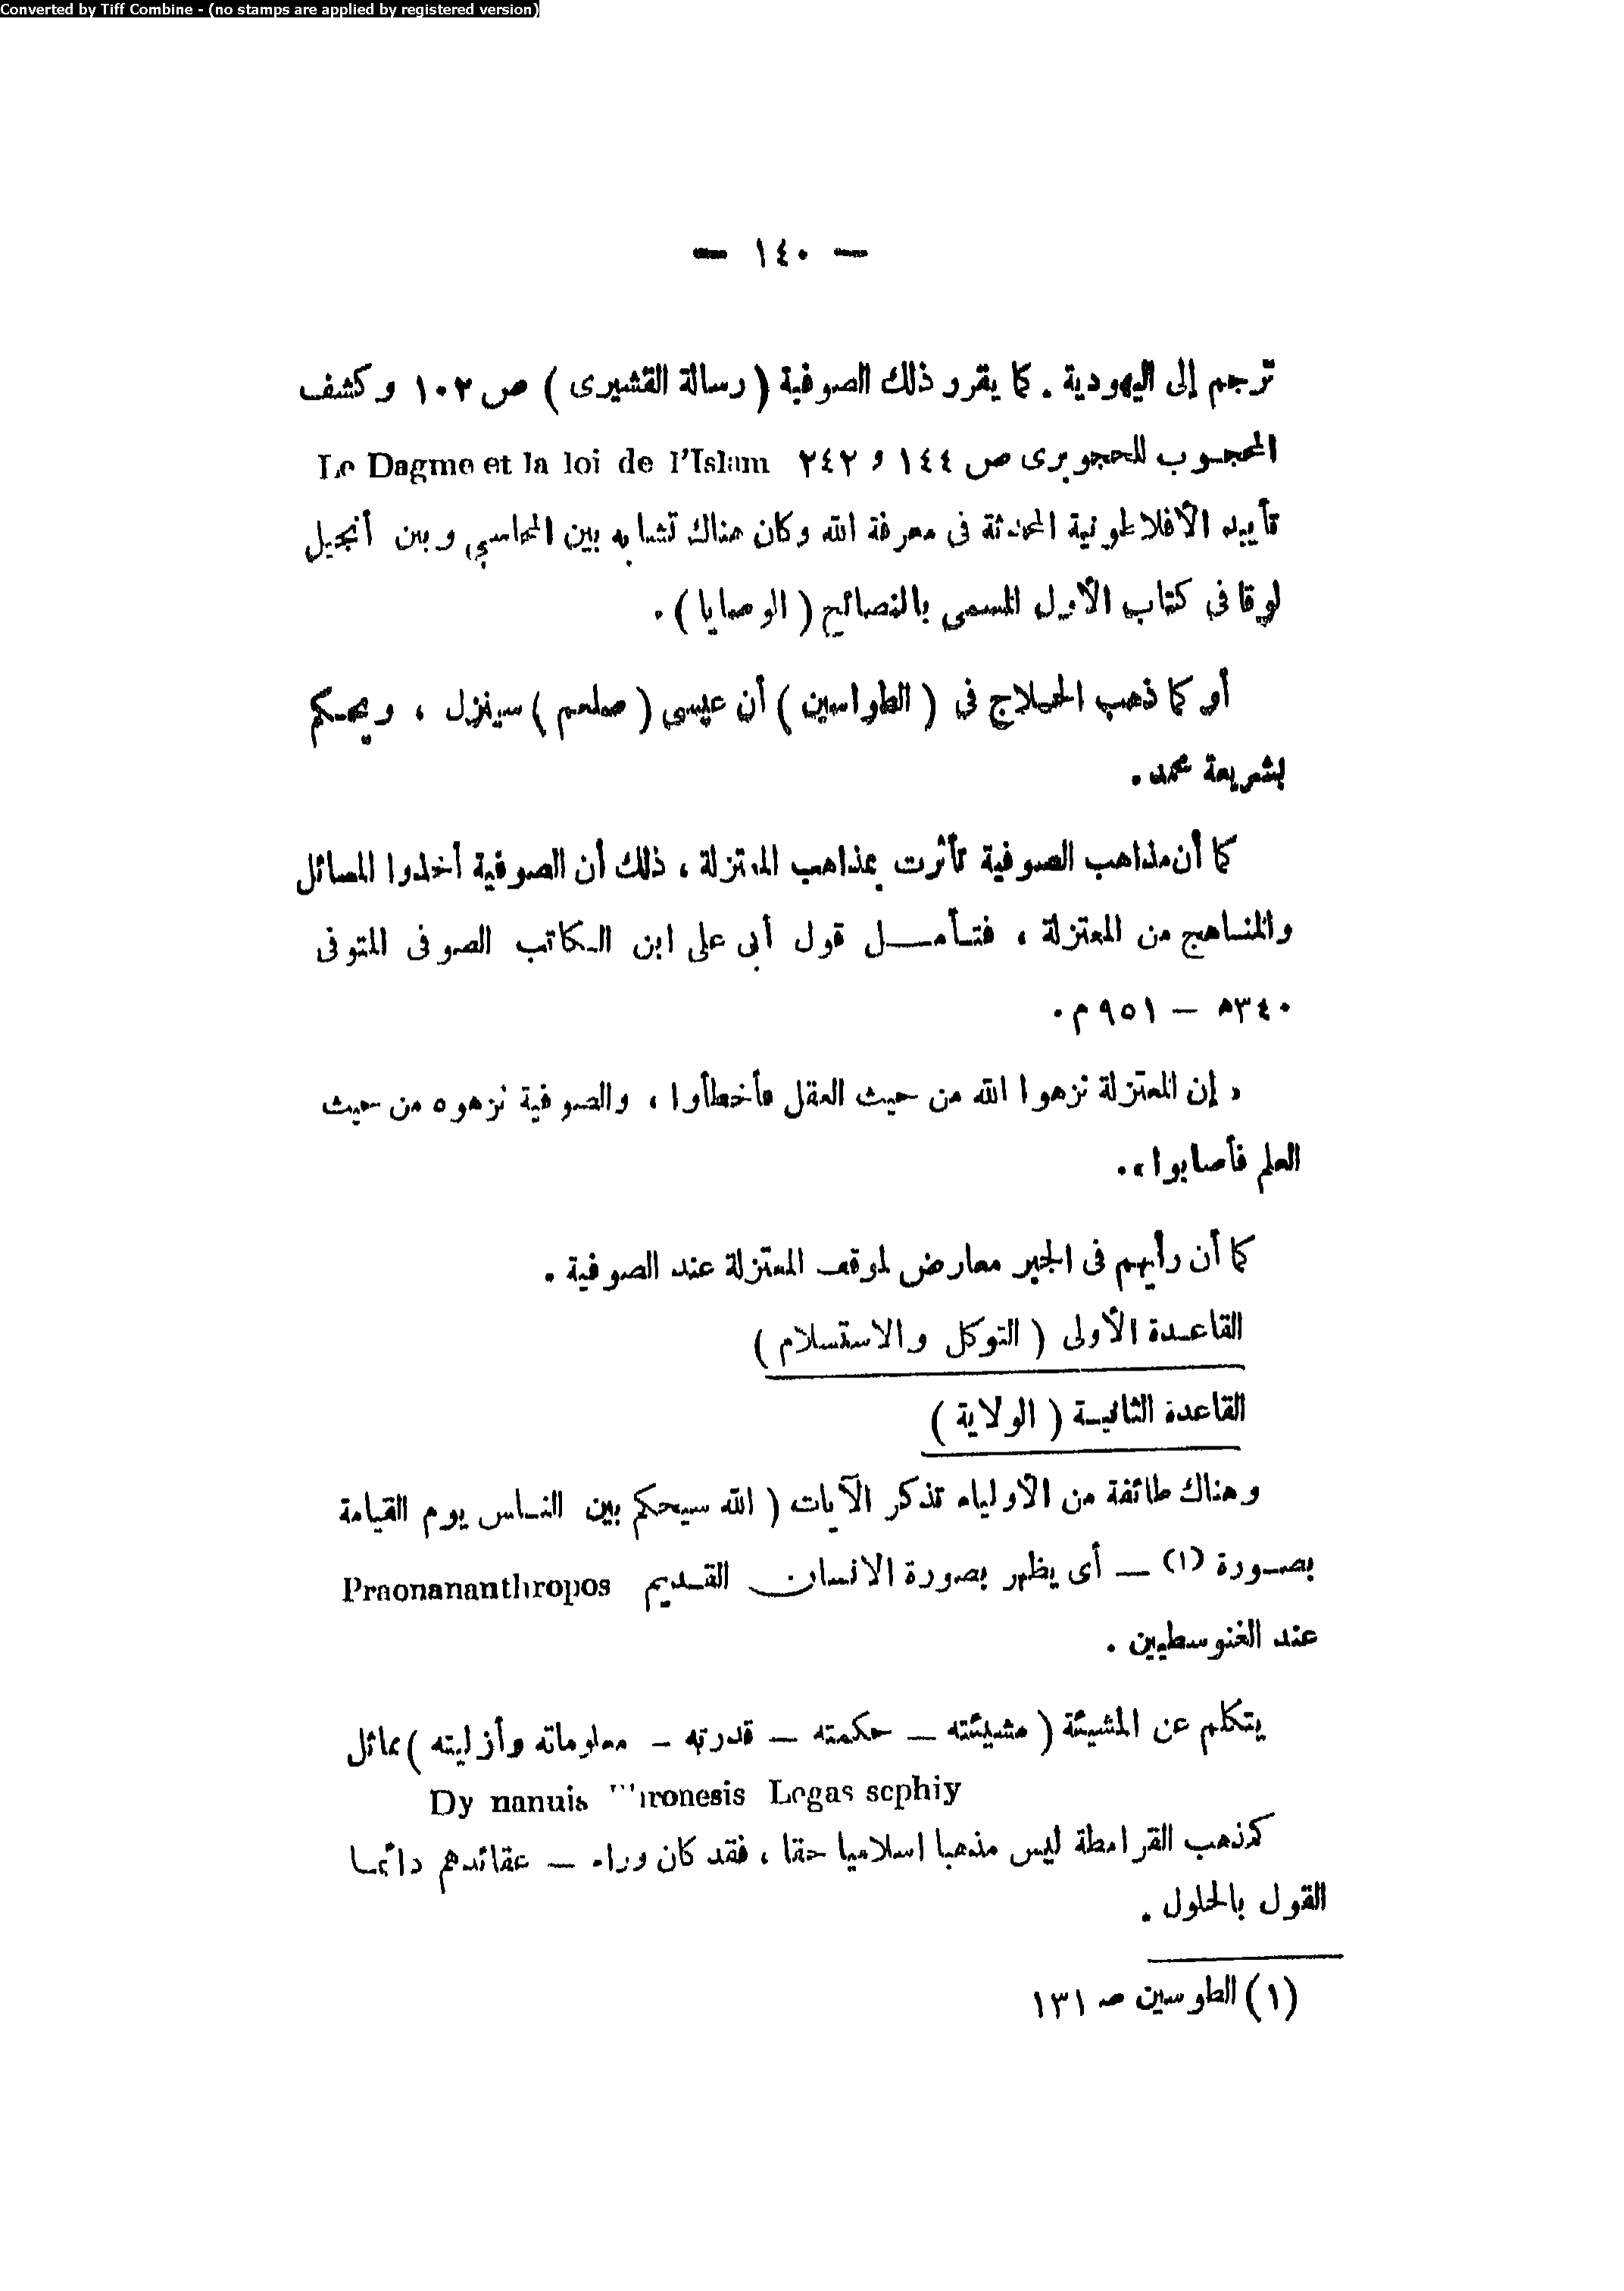 Converted by Tiff Combine - (no stamps are applied by registered version)
— ١٤٠ —
ترجم إلى اليهودية . كما يقرر ذلك الصوفية ( رسالة القشيرى ) ص ١٠٢ وكشف
المحجوب للحجويرى ص ١٤٤ و ٢٤٢ Le Dagme et la loi de l'Islam
تأييد الأفلاطونية المحدثة فى معرفة الله وكان هناك تشابه بين المحاسبي وبين أنجيل
لوقا فى كتاب الأول المسمى بالنصائح ( الوصايا ) .
أو كما ذهب الحلاج فى ( الطواسين ) أن عيسى ( صلعم ) سينزل ، ويحكم
بشريعة محمد .
كما أن مذاهب الصوفية تأثرت بمذاهب المعتزلة ، ذلك أن الصوفية أخذوا المسائل
والمناهج من المعتزلة ، فتأمل قول أبى على ابن الكاتب الصوفى المتوفى
٣٤٠ﻫ — ٩٥١ م .
« إن المعتزلة نزهوا الله من حيث العقل فأخطأوا ، والصوفية نزهوه من حيث
العلم فأصابوا » .
كما أن رأيهم فى الجبر معارض لموقف المعتزلة عند الصوفية .
القاعدة الأولى ( التوكل والاستسلام )
القاعدة الثانية ( الولاية )
وهناك طائفة من الأولياء تذكر الآيات ( الله سيحكم بين الناس يوم القيامة
بصورة (١) — أى يظهر بصورة الانسان القديم Praonananthropos
عند الغنوسطيين .
يتكلم عن المشيئة ( مشيئته — حكمته — قدرته — معلوماته وأزليته ) يماثل
Dy nanuis Logas scphiy
كمذهب القرامطة ليس مذهبا اسلاميا حقا ، فقد كان وراء — عقائدهم دائما
القول بالحلول .
(١) الطوسين صـ ١٣١